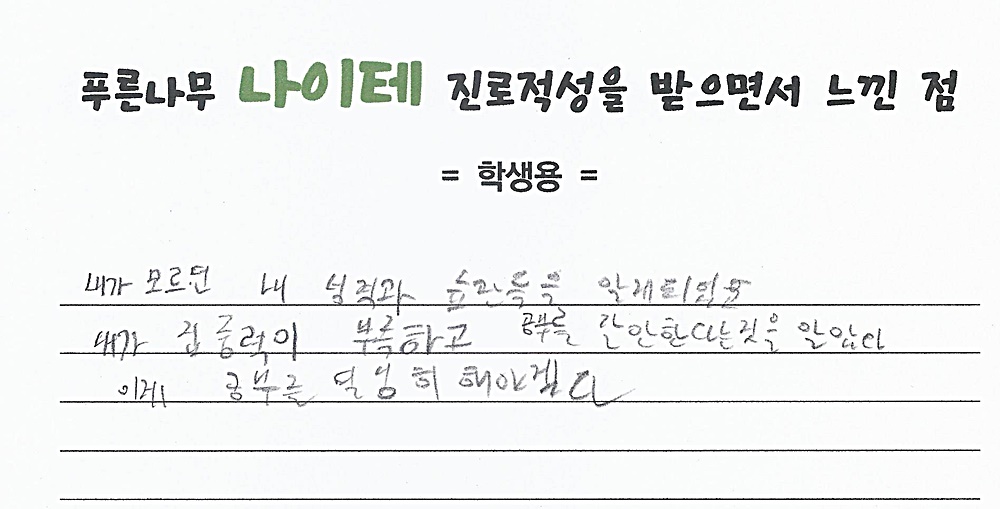 푸른나무 나이테 진로적성을 받으면서 느낀 점
= 학생용 =
내가 모르던 내 성적과 습관들을 알게되었음
내가 집중력이 부족하고 공부를 잘안한다는것을 알았다
이제 공부를 열심히 해야겠다